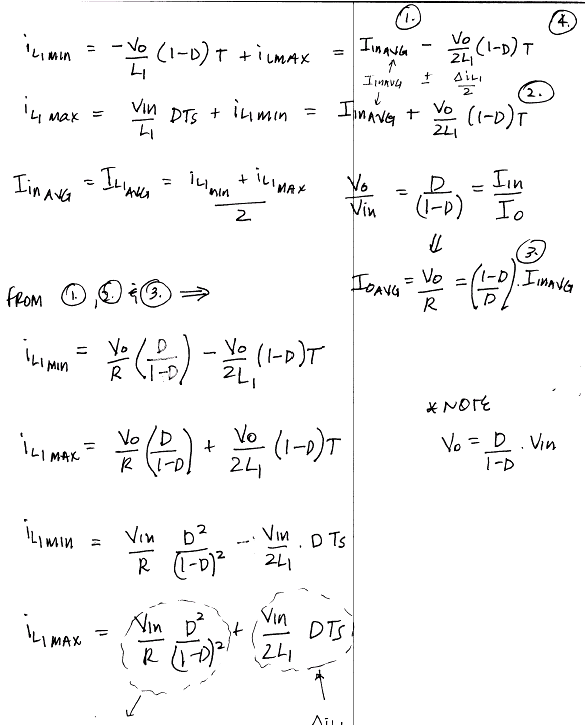 ① ④
i_{L1MIN} = -V_o/L_1 (1-D) T + i_{LMAX} = I_{inAVG} - V_o/2L_1 (1-D) T
I_{inAVG} ± Δi_{L1}/2
i_{L1max} = V_{in}/L_1 DTs + i_{L1min} = I_{inAVG} + V_o/2L_1 (1-D) T ②
I_{inAVG} = I_{L1AVG} = (i_{L1min} + i_{L1MAX})/2
V_o/V_{in} = D/(1-D) = I_{in}/I_o
⇓
I_{OAVG} = V_o/R = ((1-D)/D) . I_{inAVG} ③
FROM ①, ② & ③ ⇒
i_{L1MIN} = V_o/R (D/(1-D)) - V_o/2L_1 (1-D) T
i_{L1MAX} = V_o/R (D/(1-D)) + V_o/2L_1 (1-D) T
* NOTE
V_o = D/(1-D) . V_{in}
i_{L1MIN} = V_{in}/R D²/(1-D)² - V_{in}/2L_1 . DTs
i_{L1MAX} = V_{in}/R D²/(1-D)² + V_{in}/2L_1 DTs